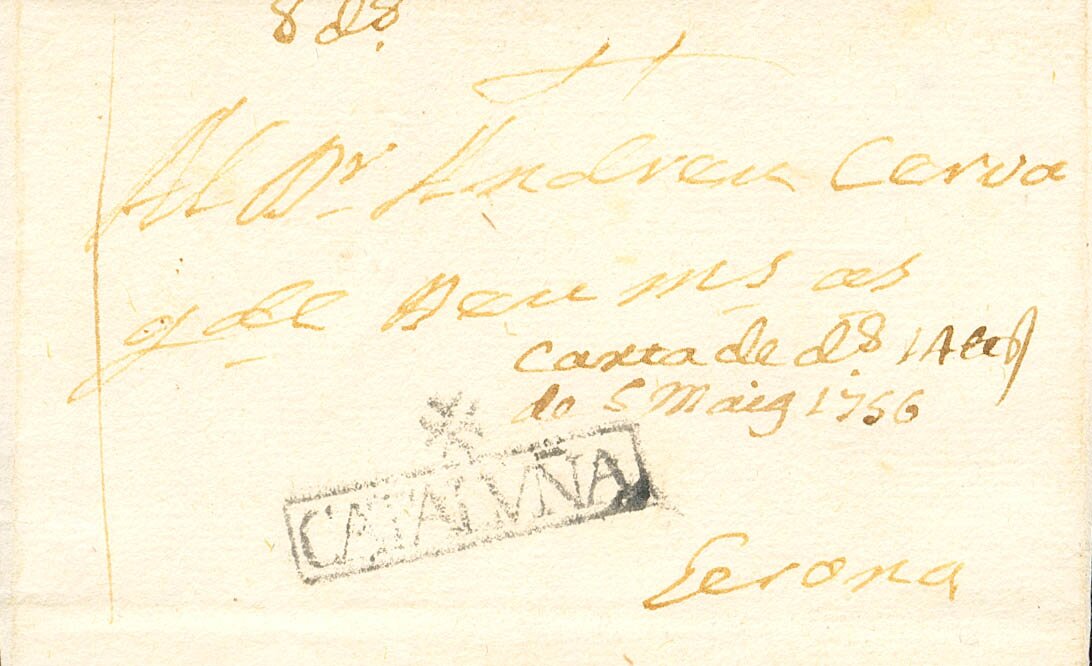 8 ds.
Al Dr. Andreu Cerva
q de Deu ms as
Carta de ds
de 5 Maig 1756
CATALVÑA
Gerona